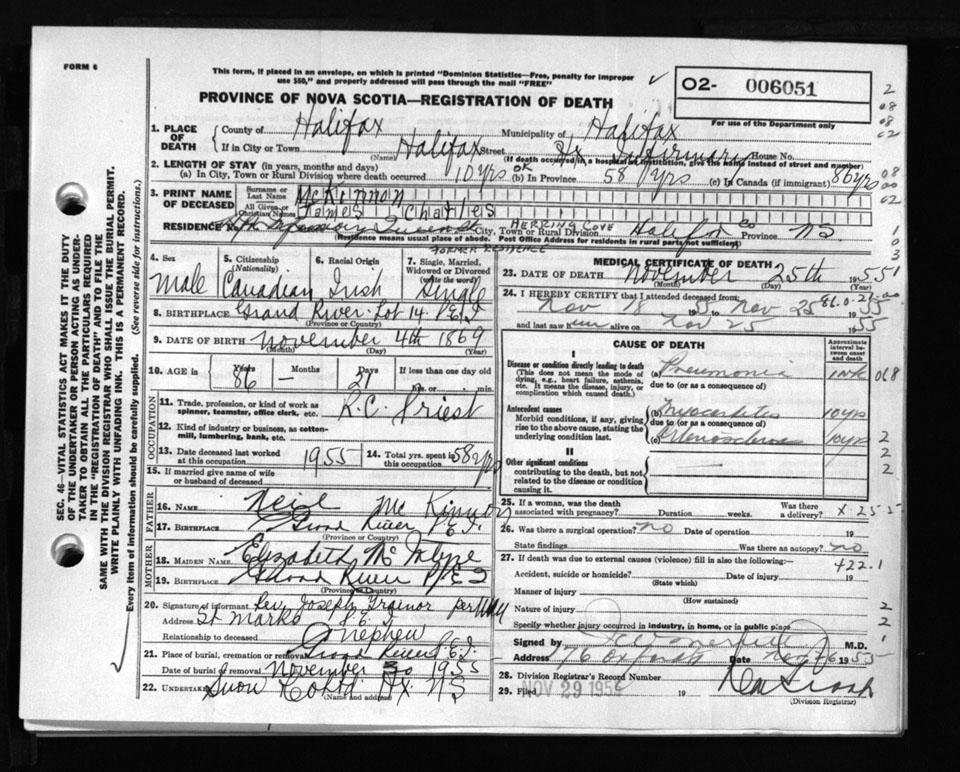 FORM 6
This form, if placed in an envelope, on which is printed "Dominion Statistics—Free, penalty for improper
use $50," and properly addressed will pass through the mail "FREE"
PROVINCE OF NOVA SCOTIA—REGISTRATION OF DEATH
O2- 006051
For use of the Department only
1. PLACE OF DEATH { County of Halifax Municipality of Halifax
If in City or Town Halifax Street Hx Infirmary House No.
(Name) (If death occurred in a hospital or institution, give its name instead of street and number)
2. LENGTH OF STAY (in years, months and days)
(a) In City, Town or Rural Division where death occurred 10 yrs OK (b) In Province 58 yrs (c) In Canada (if immigrant) 86 yrs
3. PRINT NAME OF DECEASED { Surname or Last Name McKinnon
All Given or Christian Names James Charles
RESIDENCE City, Town or Rural Division HERRING COVE Halifax Co Province NS
(Residence means usual place of abode. Post Office Address for residents in rural parts not sufficient)
FORMER RESIDENCE
4. Sex Male
5. Citizenship (Nationality) Canadian
6. Racial Origin Irish
7. Single, Married, Widowed or Divorced (write the word) Single
8. BIRTHPLACE Grand River Lot 14 P.E.I
(Province or Country)
9. DATE OF BIRTH November 4th 1869
(Month) (Day) (Year)
10. AGE is Years 86 Months — Days 21 If less than one day old
hrs. or min.
OCCUPATION
11. Trade, profession, or kind of work as spinner, teamster, office clerk, etc. R.C. Priest
12. Kind of industry or business, as cotton-mill, lumbering, bank, etc.
13. Date deceased last worked at this occupation 1955
14. Total yrs. spent in this occupation 58 yrs
15. If married give name of wife or husband of deceased
FATHER
16. Name Neil Mc Kinnon
17. Birthplace Grand River P.E.I.
(Province or Country)
MOTHER
18. MAIDEN NAME Elizabeth Mc Intyre
19. Birthplace Grand River P.E.I
(Province or Country)
20. Signature of informant Rev Joseph Trainor per
Address St Marks P.E.I
Relationship to deceased nephew
21. Place of burial, cremation or removal Grand River P.E.I.
Date of burial or removal November 30 1955
22. Undertaker Snow Co Hx. NS
(Name and address)
MEDICAL CERTIFICATE OF DEATH
23. DATE OF DEATH November 25th 1955
(Month) (Day)
24. I HEREBY CERTIFY that I attended deceased from:
Nov 18 1955 to Nov 25 1955
86.0.21
and last saw him alive on Nov 25 1955
CAUSE OF DEATH
Approximate interval between onset and death
I
Disease or condition directly leading to death (a) Pneumonia 1 wk
(This does not mean the mode of dying, e.g., heart failure, asthenia, etc. It means the disease, injury, or complication which caused death.)
due to (or as a consequence of)
Antecedent causes (b) Myocarditis 10 yrs
Morbid conditions, if any, giving rise to the above cause, stating the underlying condition last.
due to (or as a consequence of)
(c) Arteriosclerosis 10 yrs
II
Other significant conditions
contributing to the death, but not related to the disease or condition causing it.
25. If a woman, was the death associated with pregnancy? Duration weeks. Was there a delivery?
26. Was there a surgical operation? no Date of operation
State findings Was there an autopsy? no
27. If death was due to external causes (violence) fill in also the following:—
Accident, suicide or homicide? Date of injury 19
(State which)
Manner of injury
(How sustained)
Nature of injury
Specify whether injury occurred in industry, in home, or in public place
Signed by M.D.
Address 76 Oxford St Date 1955
28. Division Registrar's Record Number
29. Filed NOV 29 1955 19
(Division Registrar)
SEC. 46—VITAL STATISTICS ACT MAKES IT THE DUTY
OF THE UNDERTAKER OR PERSON ACTING AS UNDER-
TAKER TO OBTAIN ALL THE PARTICULARS REQUIRED
IN THE "REGISTRATION OF DEATH" AND TO FILE THE
SAME WITH THE DIVISION REGISTRAR WHO SHALL ISSUE THE BURIAL PERMIT.
WRITE PLAINLY WITH UNFADING INK. THIS IS A PERMANENT RECORD.
Every item of information should be carefully supplied. (See reverse side for instructions).